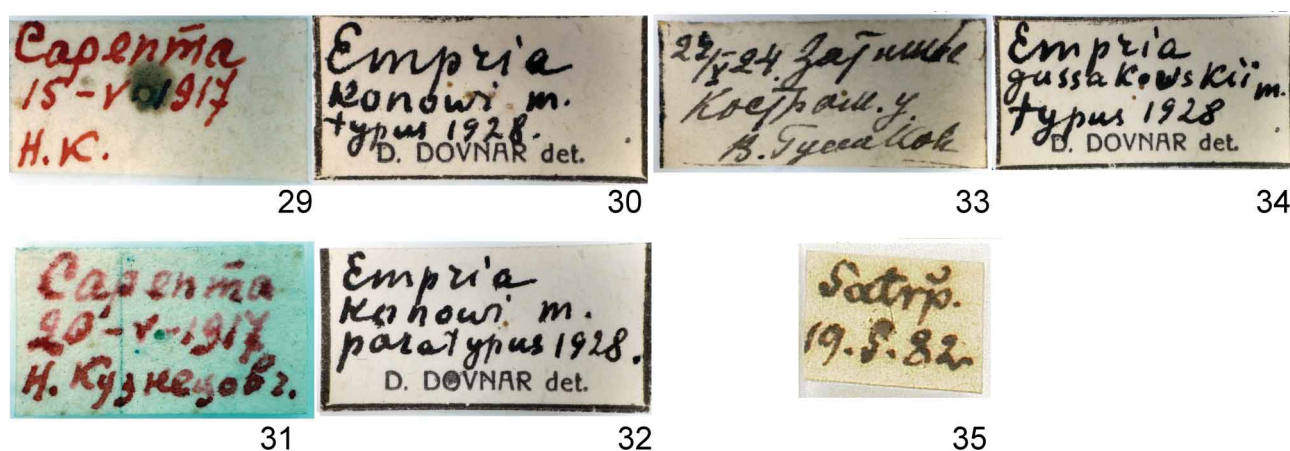 Сарепта
15-V-1917
Н.К.
29
Empria
Konowi m.
typus 1928.
D. DOVNAR det.
30
Затишье
Костром. у.
В.
33
Empria
gussakowskii m.
typus 1928
D. DOVNAR det.
34
Сарепта
20-V-1917
Н. Кузнецов
31
Empria
Konowi m.
paratypus 1928.
D. DOVNAR det.
32
Satrp.
19.5.82
35